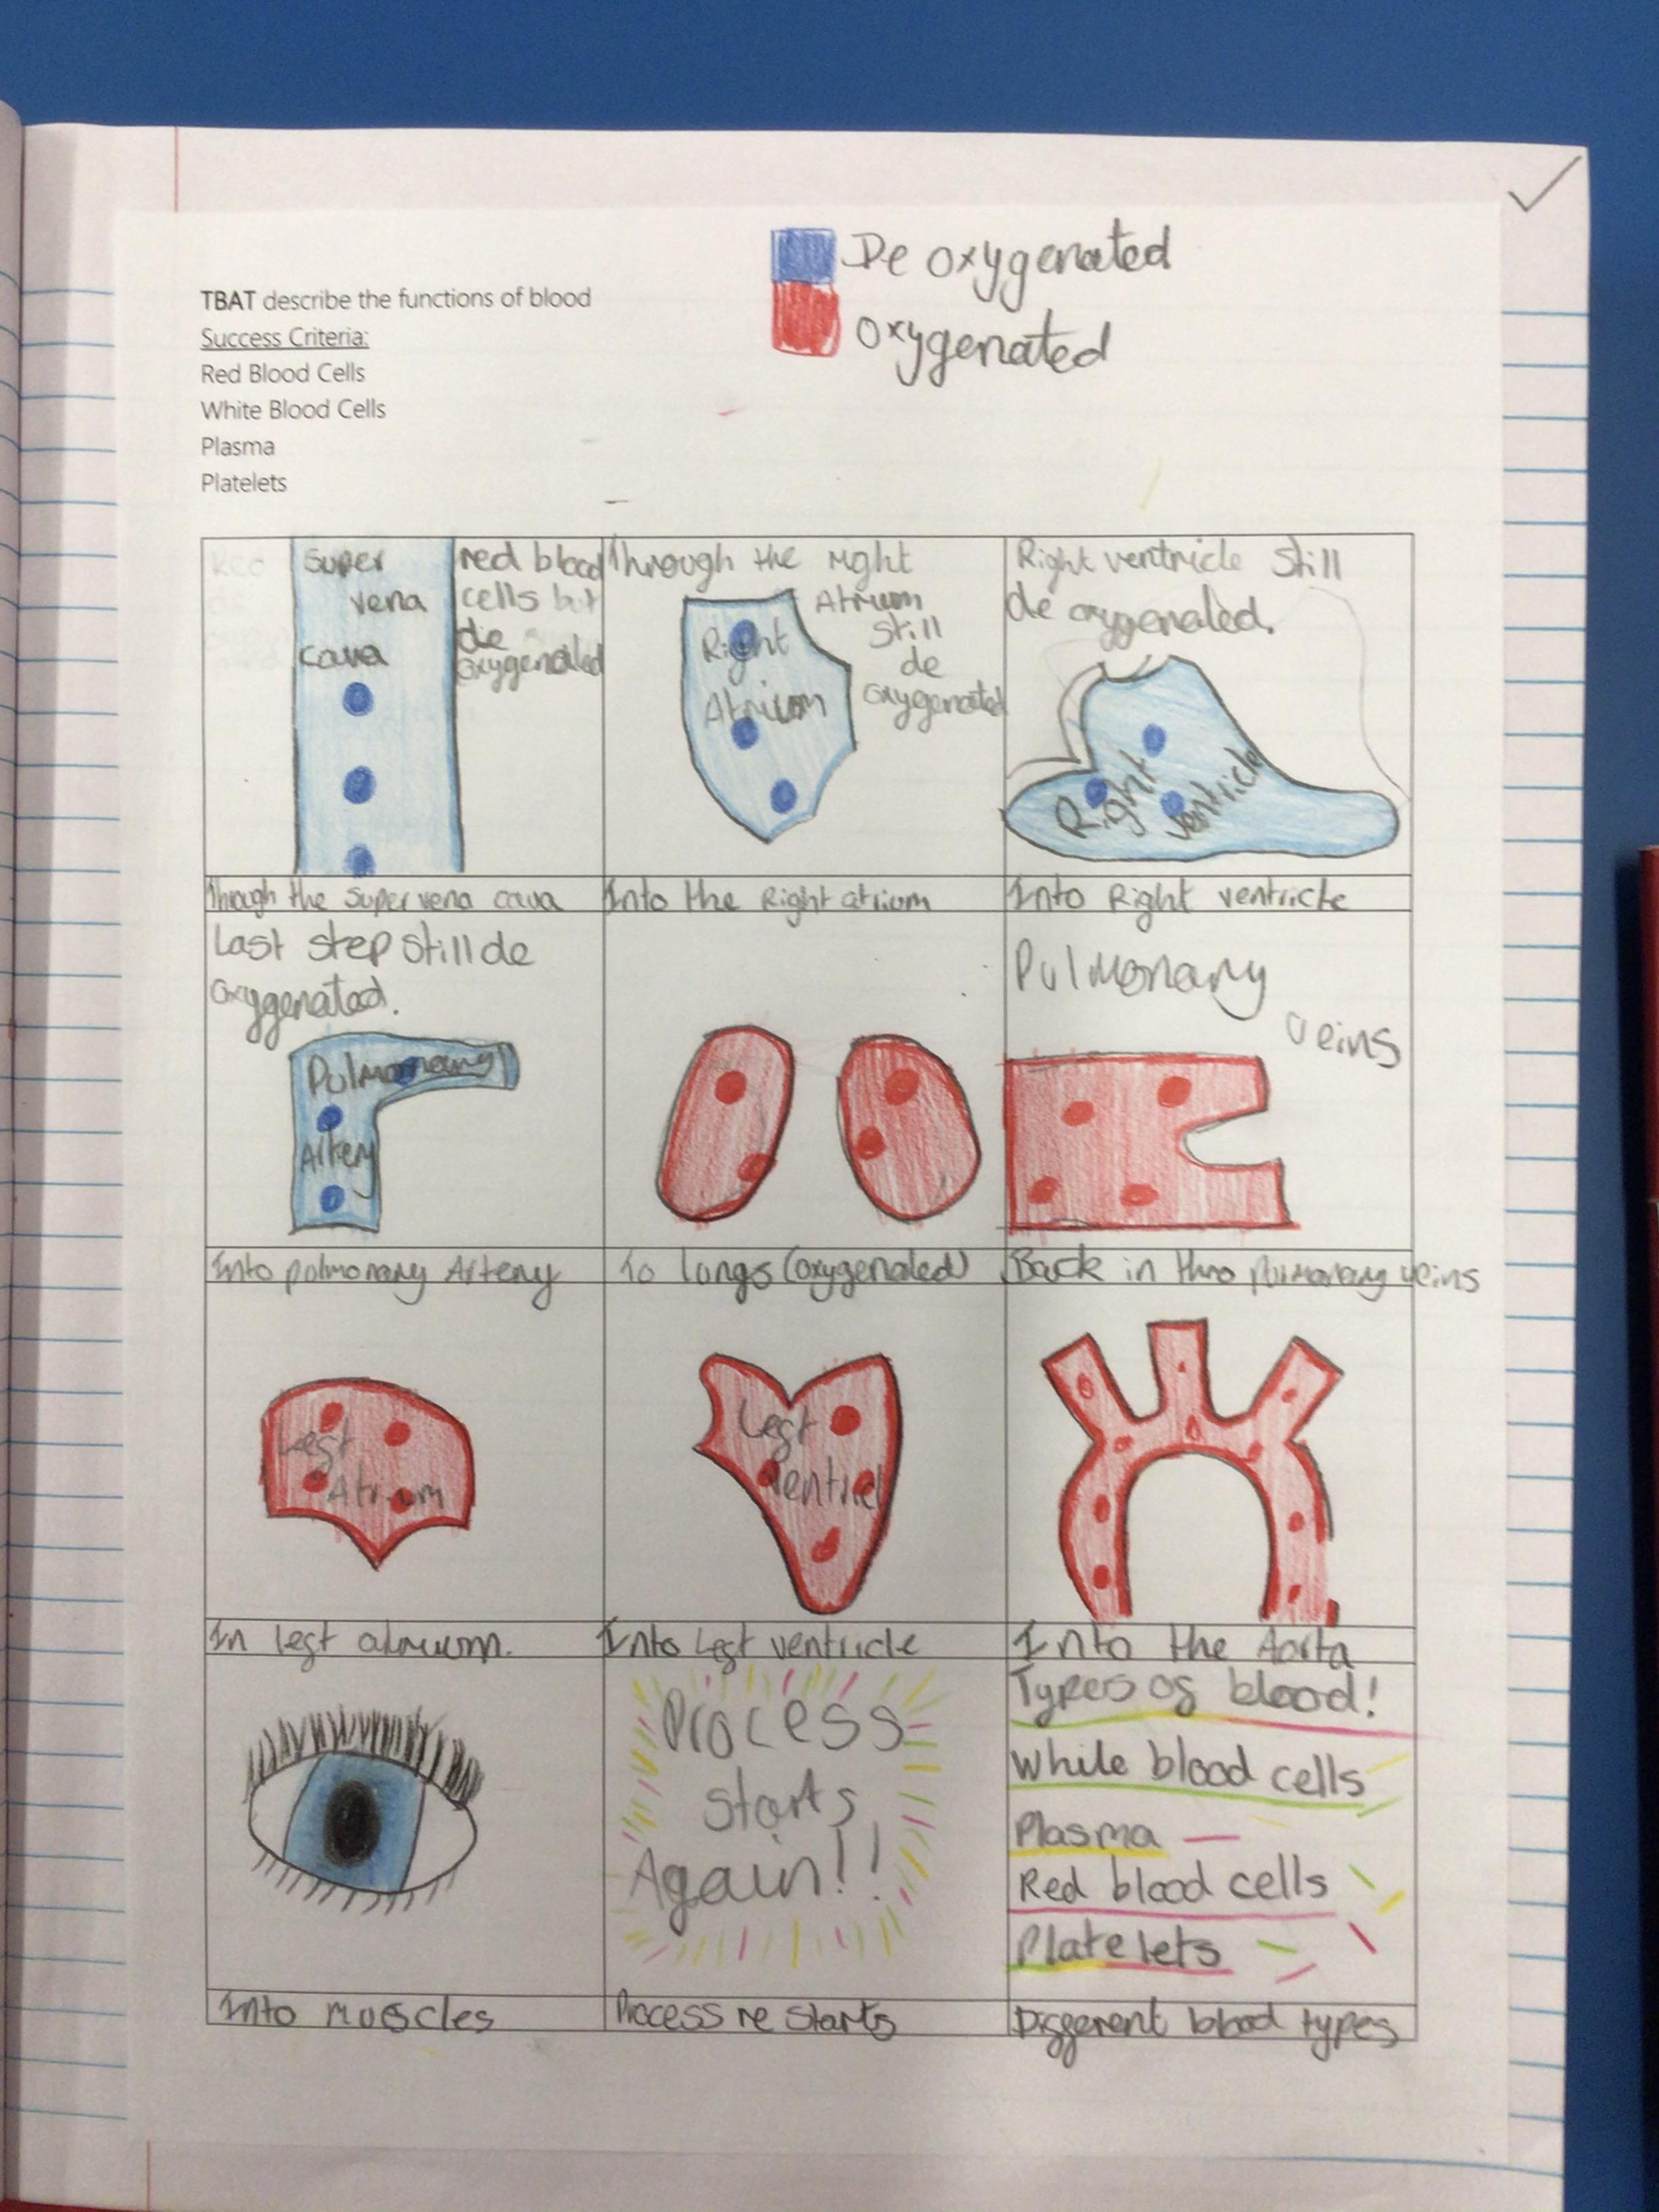 De oxygenated
oxygenated
TBAT describe the functions of blood
Success Criteria:
Red Blood Cells
White Blood Cells
Plasma
Platelets
super
vena
cava
red blood
cells but
de
oxygenated
Through the right
Atrium
still
de
oxygenated
Right
Atrium
Right ventricle still
de oxygenated.
Right
ventricle
Through the super vena cava
Into the Right atrium
Into Right ventricle
Last step still de
oxygenated.
Pulmonary
Artery
Pulmonary
veins
Into pulmonary Artery
To longs (oxygenated)
Back in thro pulmonary veins
Left
Atrium
Left
ventricl
In left atrium.
Into Left ventricle
Into the Aorta
Process
starts
Again!!
Types of blood!
White blood cells
Plasma
Red blood cells
Platelets
Into muscles
Process re starts
Different blood types